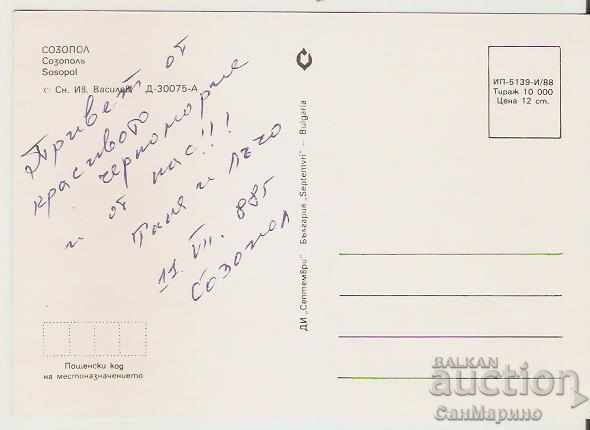 СОЗОПОЛ
Созополь
Sosopol
© Сн. Ив. Василев Д-30075-А
Привет от
красивото
черноморие
и от нас!!!
Таня и Лъчо
11. VII. 88г
Созопол
Пощенски код
на местоназначението
ДИ „Септември" – България „Septemvri" – Bulgaria
ИП-5139-И/88
Тираж 10 000
Цена 12 ст.
BALKAN
auction
СанМарино